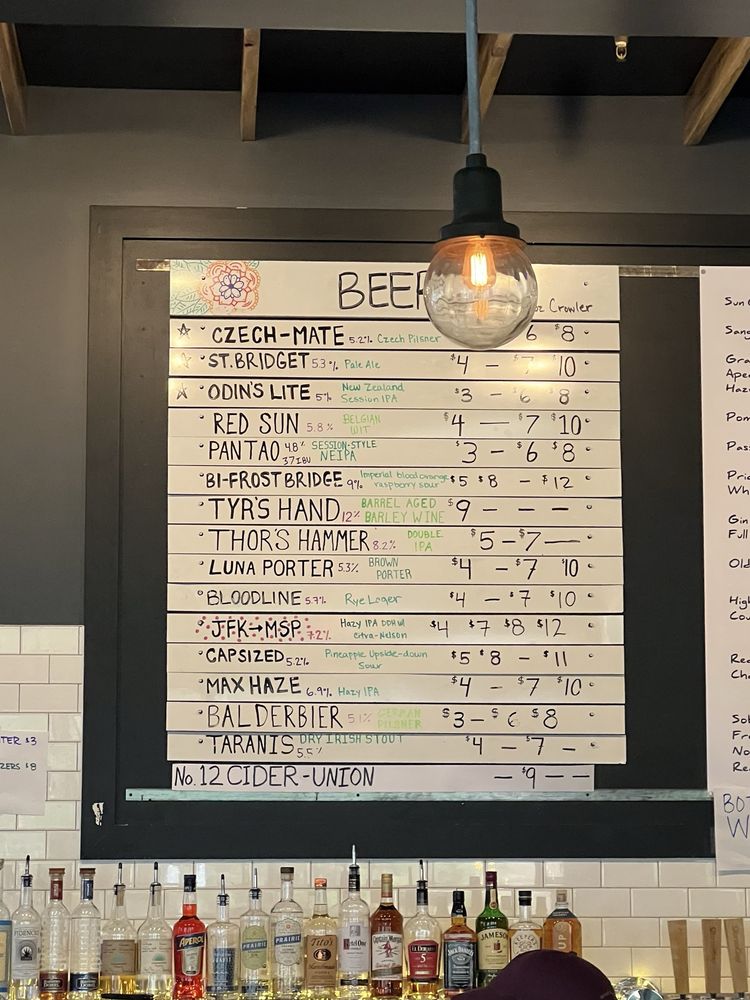 BEER
oz Crowler
CZECH-MATE 5.2% Czech Pilsner 6 $8
ST. BRIDGET 5.3% Pale Ale $4 — $7 $10
ODIN'S LITE 5% New Zealand Session IPA $3 — $6 $8
RED SUN 5.8% BELGIAN WIT $4 — $7 $10
PANTAO 4.8% 37 IBU SESSION-STYLE NEIPA $3 — $6 $8
BI-FROST BRIDGE 9% Imperial blood orange raspberry sour $5 $8 — $12
TYR'S HAND 12% BARREL AGED BARLEY WINE $9 — — —
THOR'S HAMMER 8.2% DOUBLE IPA $5 — $7 —
LUNA PORTER 5.3% BROWN PORTER $4 — $7 $10
BLOODLINE 5.7% Rye Lager $4 — $7 $10
JFK→MSP 7.2% Hazy IPA DDH w/ Citra-Nelson $4 $7 $8 $12
CAPSIZED 5.2% Pineapple Upside-down Sour $5 $8 — $11
MAX HAZE 6.9% Hazy IPA $4 — $7 $10
BALDERBIER 5.1% GERMAN PILSNER $3 — $6 $8
TARANIS 5.5% DRY IRISH STOUT $4 — $7 —
No. 12 CIDER-UNION — $9 — —
TER $3
ZERS $8
Sun
Sang
Gra
Ape
Haz
Pom
Pas
Pri
Wh
Gin
Full
Old
Hig
Cou
Re
Cha
Sol
Fre
No
Re
BOT
W
APEROL
PRAIRIE
PRAIRIE
Tito's
Ketel One
Captain Morgan
EL DORADO
5
JACK DANIEL'S
JAMESON